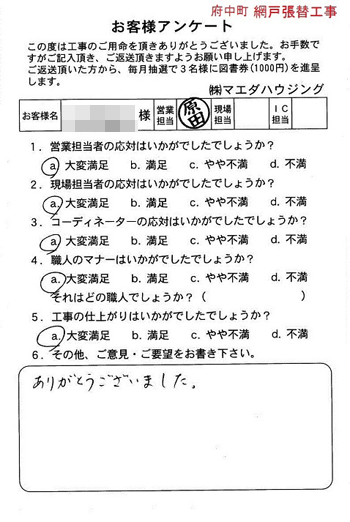 府中町 網戸張替工事
お客様アンケート
この度は工事のご用命を頂きありがとうございました。お手数で
すがご記入頂き、ご返送頂きますようお願い申し上げます。
ご返送頂いた方から、毎月抽選で3名様に図書券(1000円)を進呈
します。
㈱マエダハウジング
お客様名 様 営業担当 原田 現場担当 IC担当
1. 営業担当者の応対はいかがでしたでしょうか?
a. 大変満足 b. 満足 c. やや不満 d. 不満
2. 現場担当者の応対はいかがでしたでしょうか?
a. 大変満足 b. 満足 c. やや不満 d. 不満
3. コーディネーターの応対はいかがでしたでしょうか?
a. 大変満足 b. 満足 c. やや不満 d. 不満
4. 職人のマナーはいかがでしたでしょうか?
a. 大変満足 b. 満足 c. やや不満 d. 不満
それはどの職人でしょうか?( )
5. 工事の仕上がりはいかがでしたでしょうか?
a. 大変満足 b. 満足 c. やや不満 d. 不満
6. その他、ご意見・ご要望をお書き下さい。
ありがとうございました。